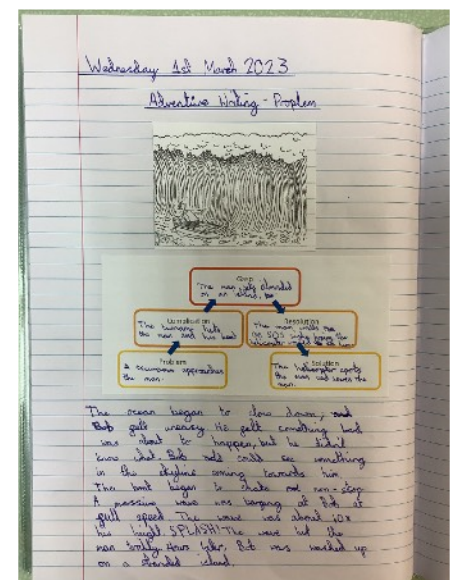 Wednesday 1st March 2023
Adventure Writing - Problem
Crisis
The man gets stranded
on an island,
Complication
The tsunami hits
the man and his boat
Resolution
The man writes
SOS
Problem
A tsunami approaches
the man.
Solution
The helicopter spots
the man and saves the
man.
The ocean began to slow down, and
Bob felt uneasy. He felt something bad
was about to happen, but he didn't
know what. Bob could see something
in the skyline coming towards him
The boat began to shake non-stop
A massive wave was barging at Bob at
full speed The wave was about 10x
his height. SPLASH! The wave hit the
man boldly. Hours later, Bob was washed up
on a stranded island.